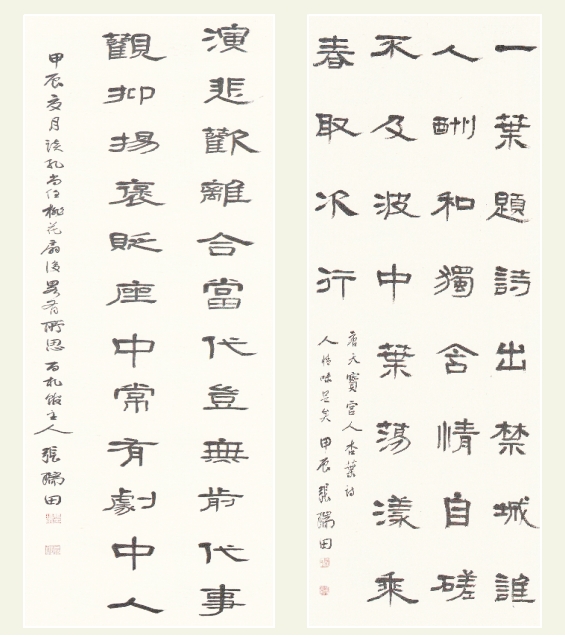 一葉題詩出禁城誰
人酬和獨含情自磋
不及波中葉蕩漾乘
春取次行
唐天寶宮人杏葉詩
人情味足矣 甲辰 張瑞田
演悲歡離合當代豈無前代事
觀抑揚褒貶座中常有劇中人
甲辰夏月讀孔尚任桃花扇後畧有所思百札館主人 張瑞田